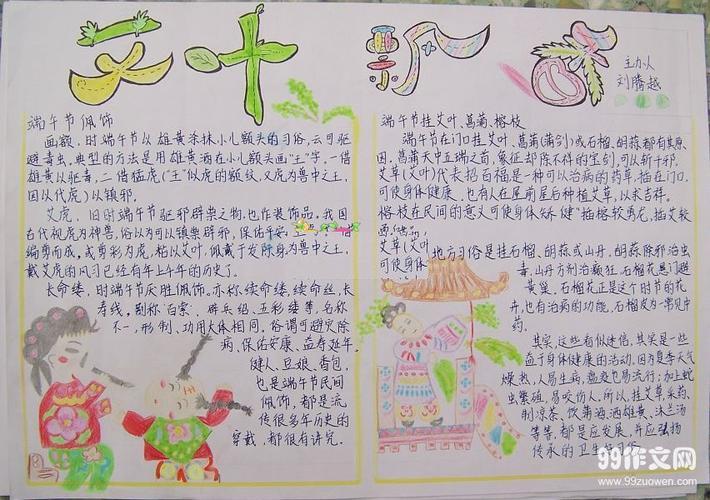 艾叶飘香
主办人
刘腾越
端午节佩饰
画额，时端午节以雄黄涂抹小儿额头的习俗，云可驱
避毒虫，典型的方法是用雄黄酒在小儿额头画"王"字，一借
雄黄以驱毒，二借猛虎（"王"似虎的额纹，又虎为兽中之王，
因以代虎）以镇邪。
艾虎，旧时端午节驱邪辟祟之物，也作装饰品。我国
古代视虎为神兽，俗以为可以镇祟辟邪、保佑安
编剪而成，或剪彩为虎，粘以艾叶，佩戴于发际身为兽中之王，
戴艾虎的风习已经有年上午年的历史了。
长命缕，时端午节厌胜佩饰。亦称续命缕，续命丝，长
寿线，别称"百索"、辟兵绍、五彩缕等，名称
不一，形制、功用大体相同。俗谓可避灾除
病、保佑安康、益寿延年。
健人、豆娘、香包，
也是端午节民间
佩饰，都是流
传很多年历史的
穿戴，都很有讲究。
端午节挂艾叶、菖蒲、榕枝
端午节在门口挂艾叶、菖蒲（蒲剑）或石榴、胡蒜，都有其原
因。菖蒲天中五瑞之首，象征却除不祥的宝剑，可以斩千邪。
艾草（艾叶）代表招百福是一种可以治病的药草，插在门口，
可使身体健康。也有人在屋前屋后种植艾草，以求吉祥。
榕枝在民间的意义可使身体矫健"插榕较勇龙，插艾较
艾草（艾叶）
可使身体
地方习俗是挂石榴、胡蒜或山丹，胡蒜除邪治虫
毒，山丹方剂治癫狂。石榴花悬门避
黄巢。石榴花正是这个时节的花
卉，也有治病的功能，石榴皮为一常见中
药。
其实，这些看似迷信，其实是一些
益于身体健康的活动，因为夏季天气
燥热，人易生病，瘟疫也易流行；加上蛇
虫繁殖，易咬伤人，所以，挂艾草采药、
制凉茶、饮蒲酒、洒雄黄、沐兰汤
等等，都是应发展，并应弘扬
传承的卫生好习俗
99作文网
www.99zuowen.com